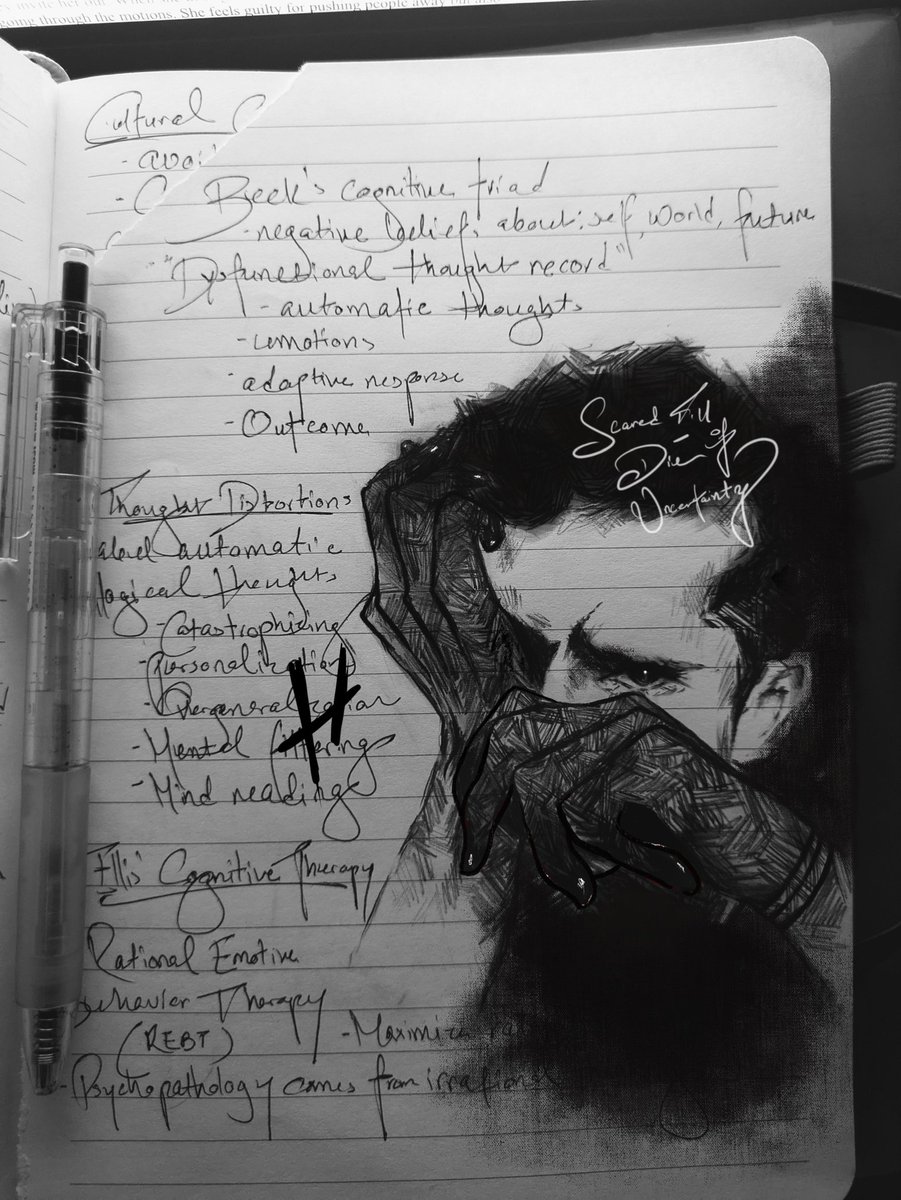 going through the motions. She feels guilty for pushing people away but also
Cultural C
- avoi
- C
Beck's cognitive triad
- negative beliefs about: self, world, future
- "Dysfunctional thought record"
- automatic thoughts
- emotions
- adaptive response
- Outcome
Scared Till
Die of
Uncertainty
Thought Distortions
automatic
logical thoughts
- Catastrophizing
- Personalization
- Overgeneralization
- Mental filtering
- Mind reading
Ellis' Cognitive Therapy
Rational Emotive
Behavior Therapy
(REBT)
- Maximize ra
- Psychopathology comes from irrational